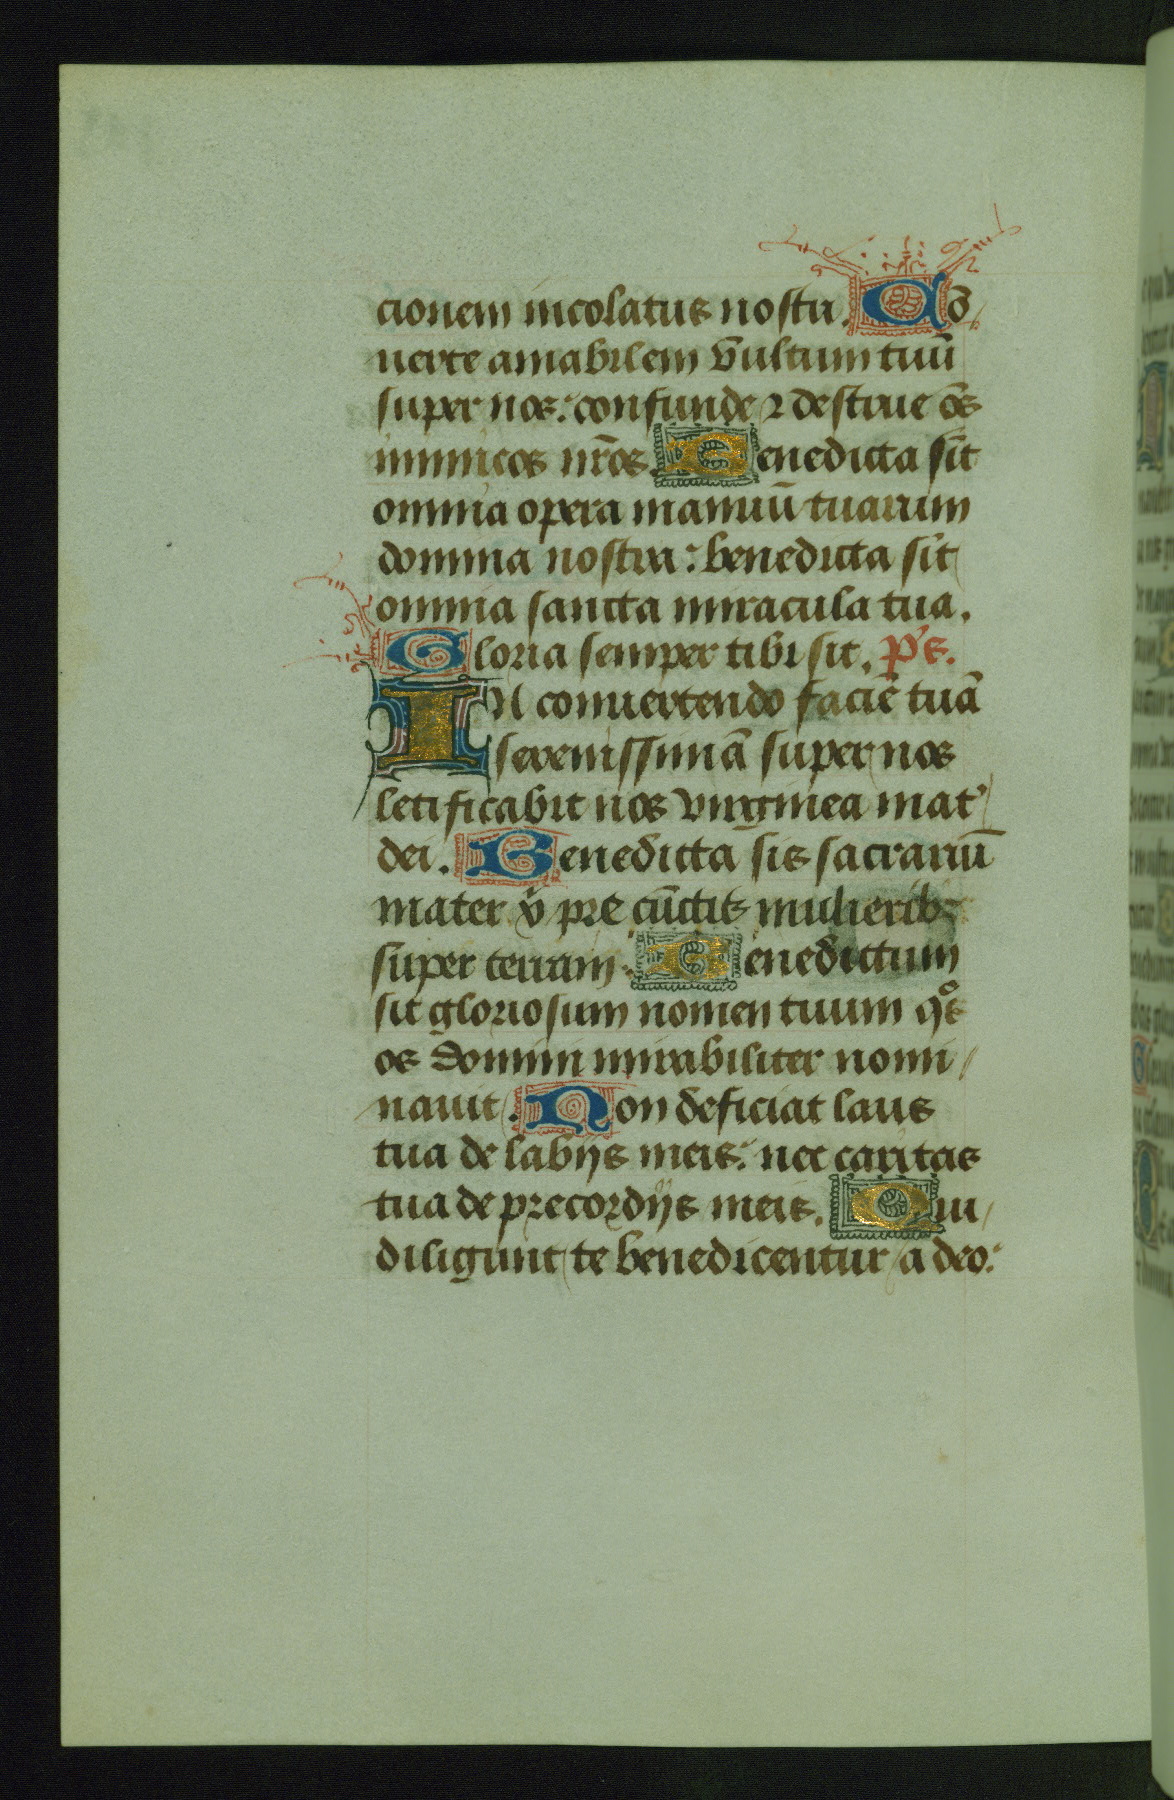 cionem incolatus nostri. Cō
uerte amabilem v̄ultum tuū
super nos: confunde ⁊ destrue oēs
inimicos nr̄os. Benedicta sīt
omnia opera manuū tuarum
domina nostra: benedicta sīt
omnia sancta miracula tua.
Gloria semper tibi sit. p̄s.
IN conuertendo faciē tuā
serenissimā super nos
letificabit nos virginea mat᾽
dei. Benedicta sis sacrariū
mater x̄ pre cūctis mulierib⁊
super terram: Benedictum
sit gloriosum nomen tuum qͦs
os domini mirabiliter nomi
nauit. Non deficiat laus
tua de labijs meis: nec caritas
tua de precordijs meis. Qui
diligunt te benedicentur a deo: